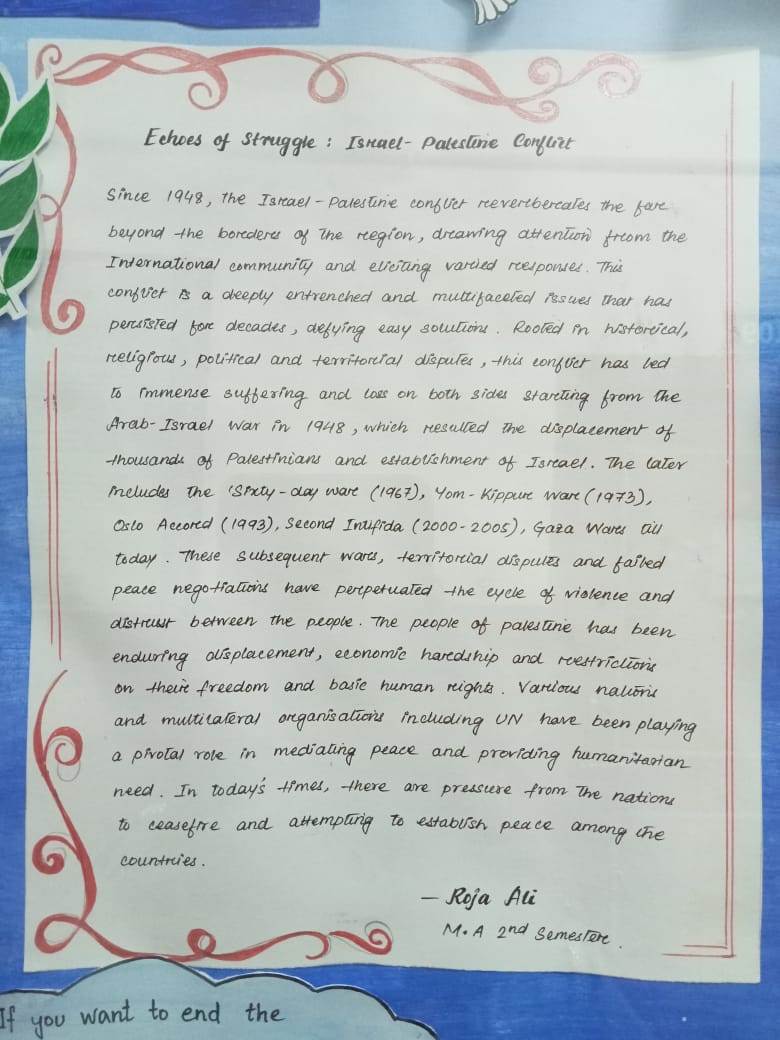 Echoes of Struggle : Israel - Palestine Conflict
Since 1948, the Israel - Palestine conflict reverberates the far
beyond the borders of the region, drawing attention from the
International community and eliciting varied responses. This
conflict is a deeply entrenched and multifaceted issues that has
persisted for decades, defying easy solutions. Rooted in historical,
religious, political and territorial disputes, this conflict has led
to immense suffering and loss on both sides starting from the
Arab-Israel War in 1948, which resulted the displacement of
thousands of Palestinians and establishment of Israel. The later
includes the 'Sixty-day war (1967), Yom-Kippur War (1973),
Oslo Accord (1993), Second Intifida (2000-2005), Gaza Wars till
today. These subsequent wars, territorial disputes and failed
peace negotiations have perpetuated the cycle of violence and
distrust between the people. The people of palestine has been
enduring displacement, economic hardship and restrictions
on their freedom and basic human rights. Various nations
and multilateral organisations including UN have been playing
a pivotal role in mediating peace and providing humanitarian
need. In today's times, there are pressure from the nations
to ceasefire and attempting to establish peace among the
countries.
— Roja Ali
M.A 2nd Semester.
If you want to end the